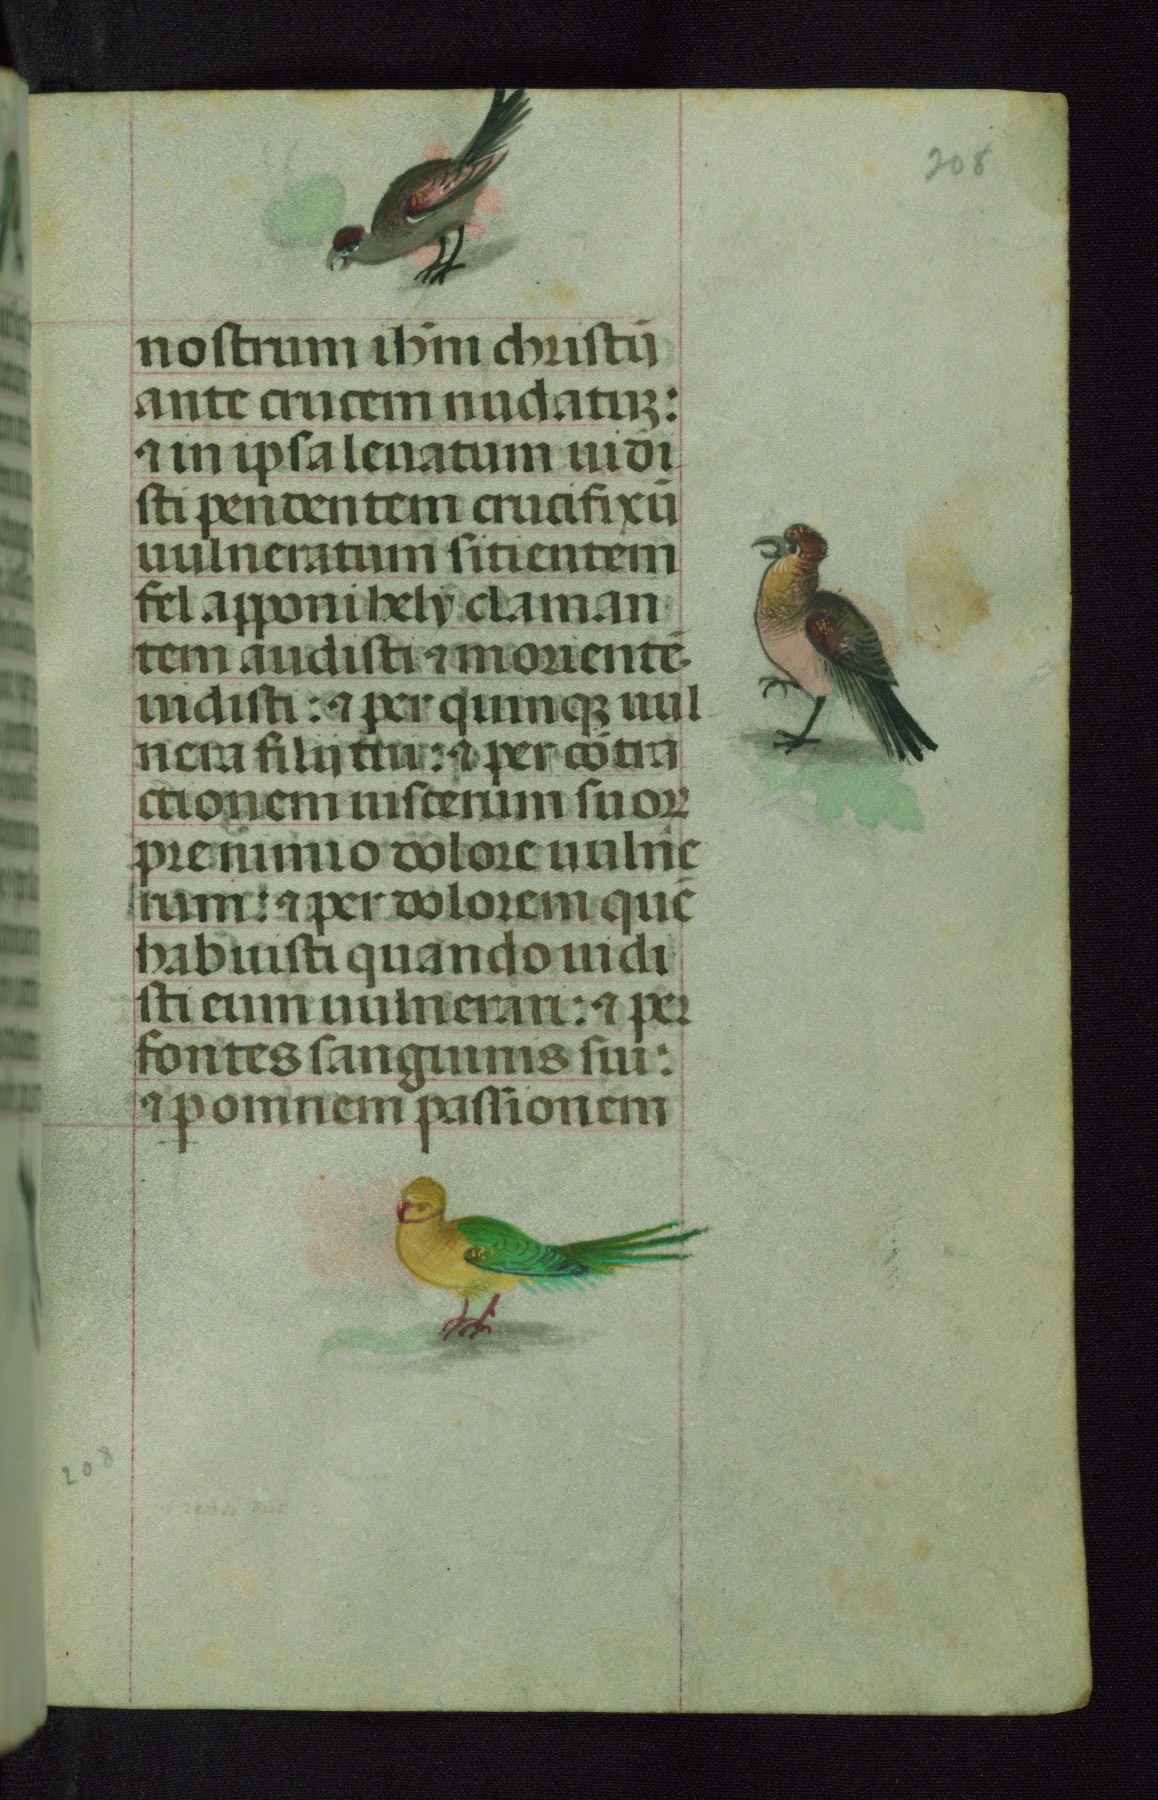 208
nostrum ihm̄ christū
ante crucem nudatuꝫ:
⁊ in ipsa leuatum uidi
sti pendentem crucifixū
uulneratum sitientem
fel apponi hely claman
tem audisti ⁊ morientē
uidisti: ⁊ per quinqꝫ uul
nera filij tui: ⁊ per cōtra
ctionem uiscerum suoꝝ
pre nimio dolore uulne
rum: ⁊ per dolorem quē
habuisti quando uidi
sti eum uulnerari: ⁊ per
fontes sanguinis sui:
⁊ ꝑ omnem passionem
208